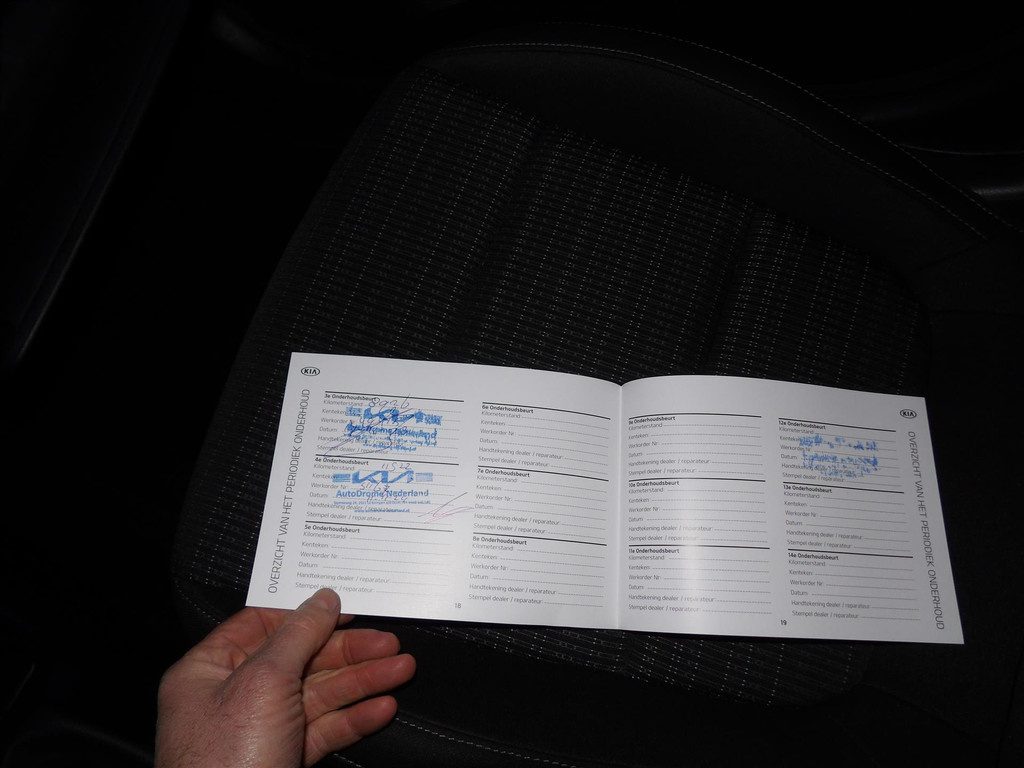 KIA
OVERZICHT VAN HET PERIODIEK ONDERHOUD
3e Onderhoudsbeurt
Kilometerstand 8926
Kenteken
Werkorder
Datum
Handtekening dealer
Stempel dealer /
4e Onderhoudsbeurt
Kilometerstand 11522
Kenteken
Werkorder
AutoDrome Nederland
Datum
Handtekening dealer / reparateur
Stempel dealer / reparateur
5e Onderhoudsbeurt
Kilometerstand
Kenteken
Werkorder Nr
Datum
Handtekening dealer / reparateur
Stempel dealer / reparateur
6e Onderhoudsbeurt
Kilometerstand
Kenteken
Werkorder Nr
Datum
Handtekening dealer / reparateur
Stempel dealer / reparateur
7e Onderhoudsbeurt
Kilometerstand
Kenteken
Werkorder Nr
Datum
Handtekening dealer / reparateur
Stempel dealer / reparateur
8e Onderhoudsbeurt
Kilometerstand
Kenteken
Werkorder Nr
Datum
Handtekening dealer / reparateur
Stempel dealer / reparateur
18
9e Onderhoudsbeurt
Kilometerstand
Kenteken
Werkorder Nr
Datum
Handtekening dealer / reparateur
Stempel dealer / reparateur
10e Onderhoudsbeurt
Kilometerstand
Kenteken
Werkorder Nr
Datum
Handtekening dealer / reparateur
Stempel dealer / reparateur
11e Onderhoudsbeurt
Kilometerstand
Kenteken
Werkorder Nr
Datum
Handtekening dealer / reparateur
Stempel dealer / reparateur
12e Onderhoudsbeurt
Kilometerstand
Kenteken
Werkorder
Datum
Handtekening
Stempel dealer / reparateur
13e Onderhoudsbeurt
Kilometerstand
Kenteken
Werkorder Nr
Datum
Handtekening dealer / reparateur
Stempel dealer / reparateur
14e Onderhoudsbeurt
Kilometerstand
Kenteken
Werkorder Nr
Datum
Handtekening dealer / reparateur
Stempel dealer / reparateur
19
KIA
OVERZICHT VAN HET PERIODIEK ONDERHOUD